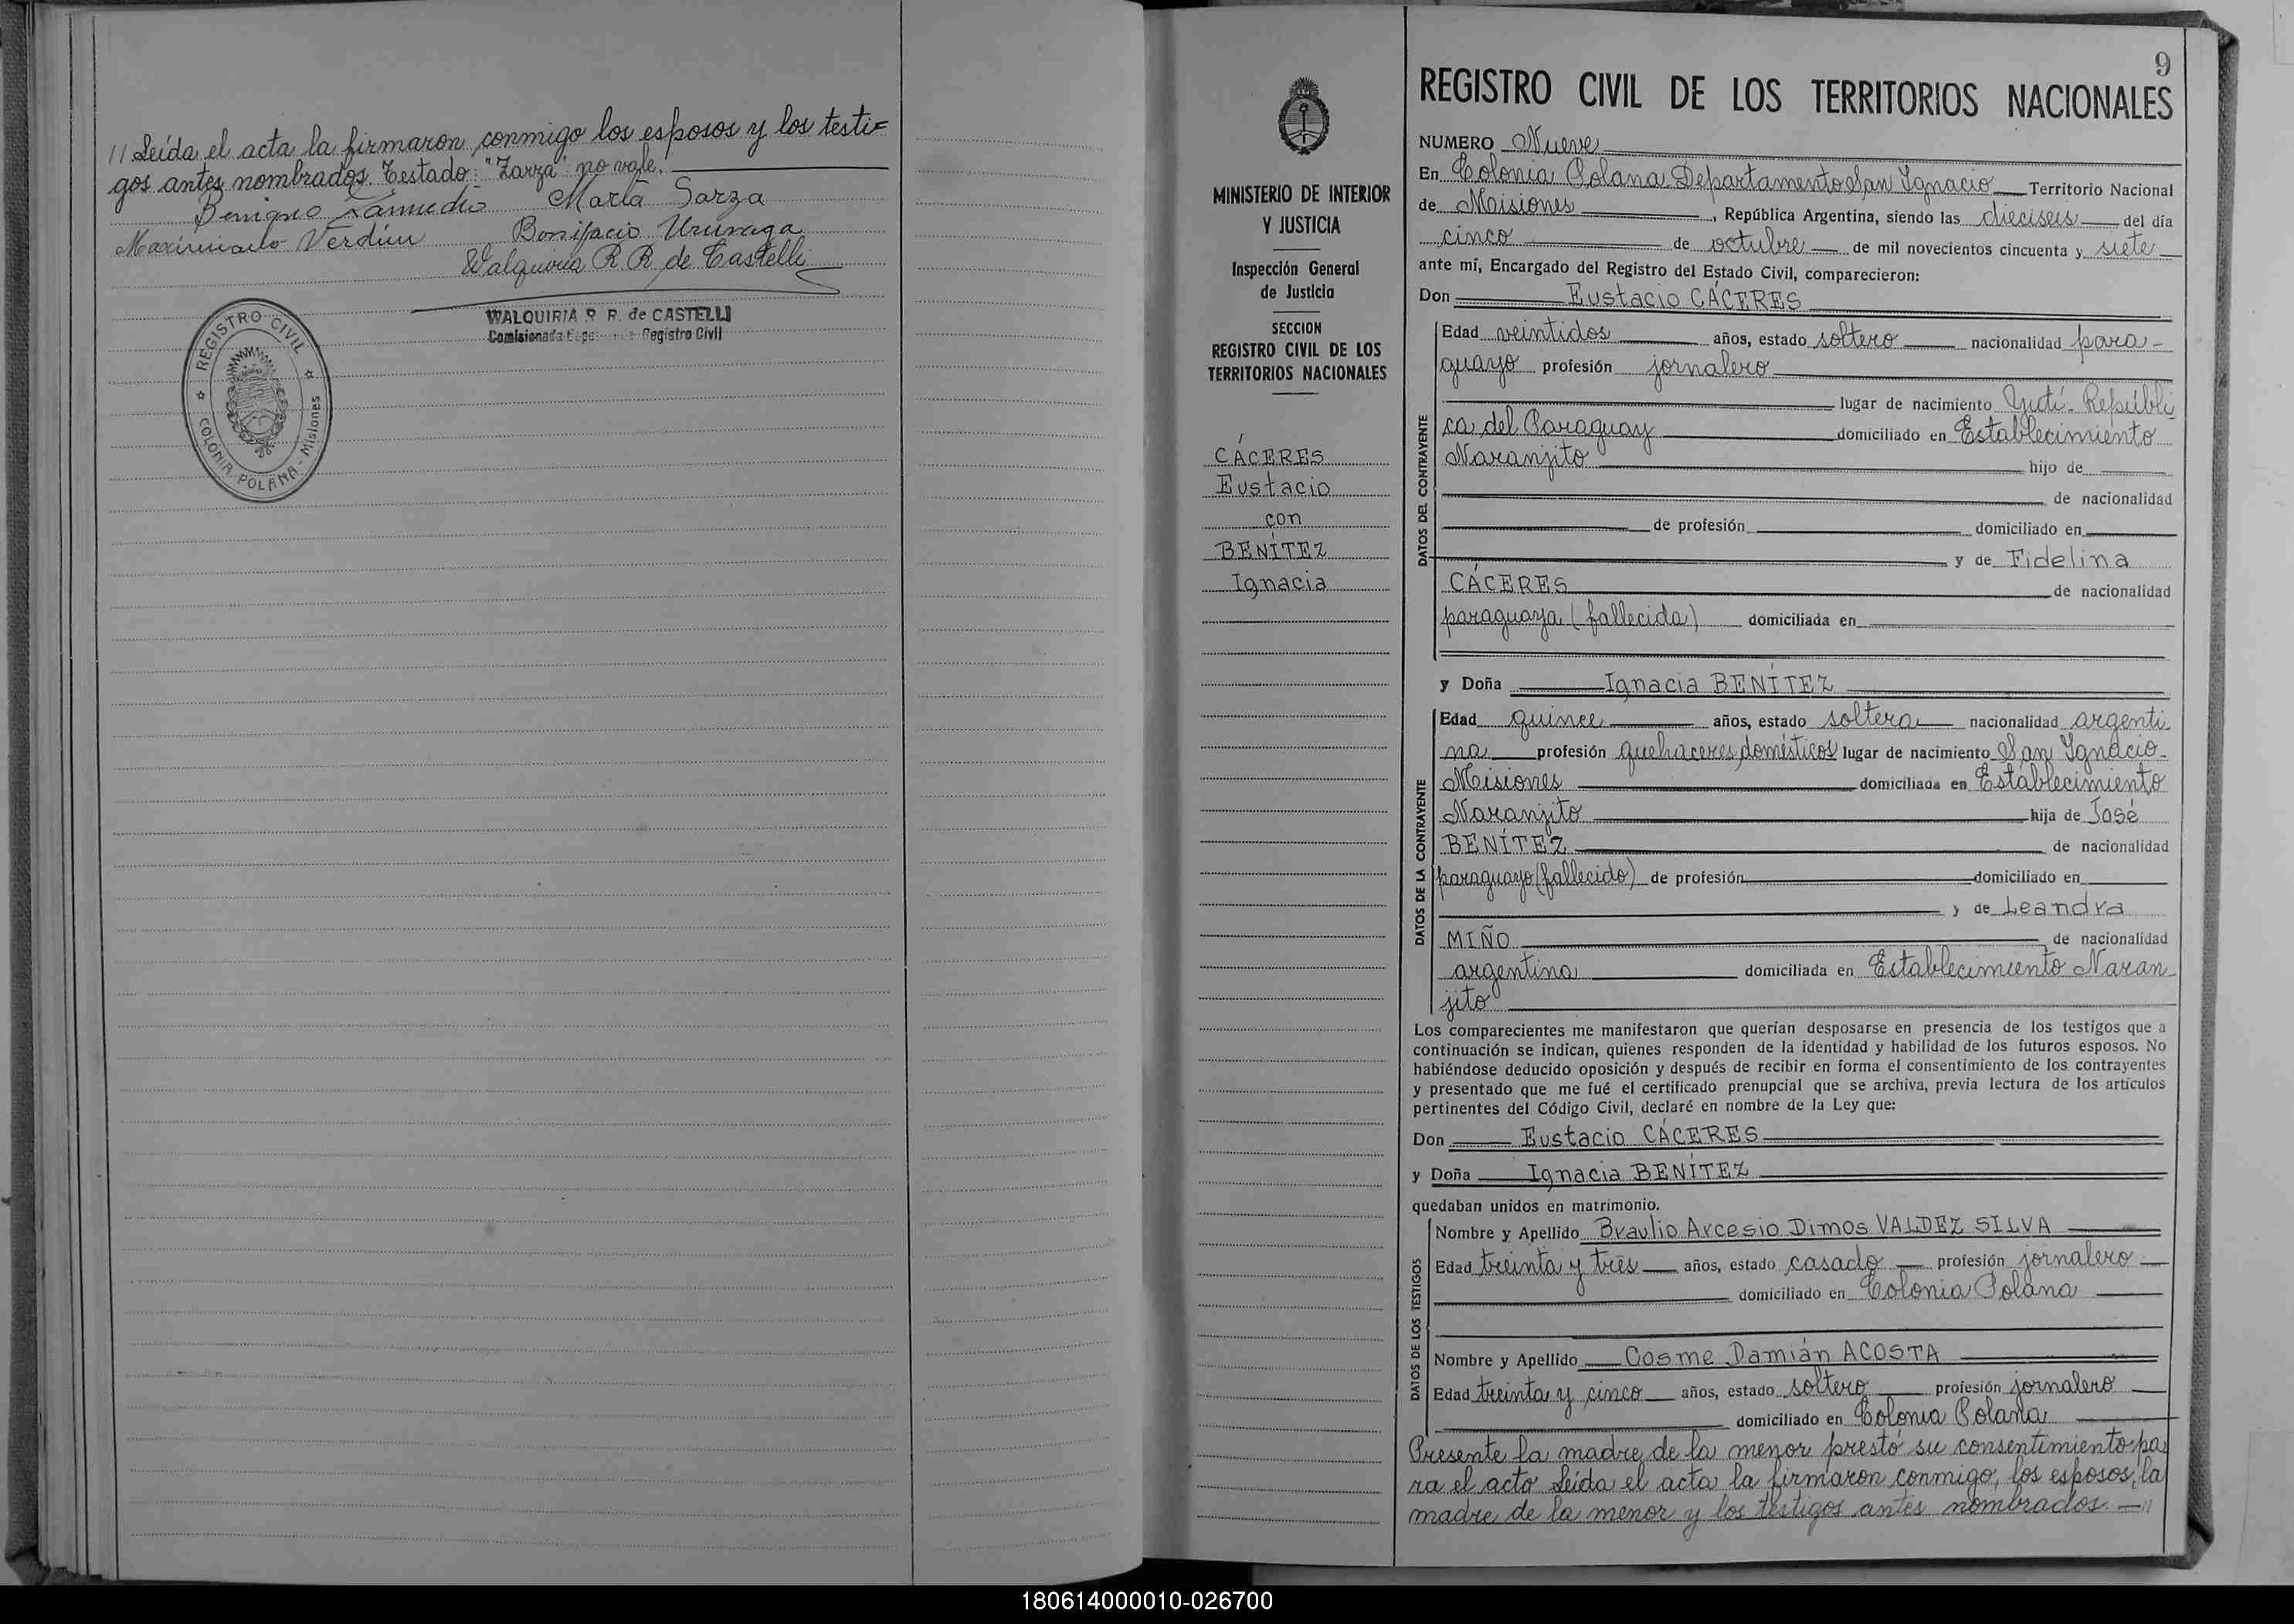 // Leída el acta la firmaron conmigo los esposos y los testi=
gos antes nombrados. Testado: "Zarza" no vale.
Benigno
María Sarza
Maximiano Verdún
Bonifacio
Walquiria R R de Castelli
WALQUIRIA R R. de CASTELLI
Comisionada Registro Civil
REGISTRO CIVIL
COLONIA POLANA - Misiones
9
REGISTRO CIVIL DE LOS TERRITORIOS NACIONALES
MINISTERIO DE INTERIOR
Y JUSTICIA
Inspección General
de Justicia
SECCION
REGISTRO CIVIL DE LOS
TERRITORIOS NACIONALES
CÁCERES
Eustacio
con
BENÍTEZ
Ignacia
NUMERO Nueve
En Colonia Polana Departamento San Ignacio Territorio Nacional
de Misiones, República Argentina, siendo las dieciseis del día
cinco de octubre de mil novecientos cincuenta y siete
ante mí, Encargado del Registro del Estado Civil, comparecieron:
Don Eustacio CÁCERES
DATOS DEL CONTRAYENTE
Edad veintidos años, estado soltero nacionalidad para-
guayo profesión jornalero
lugar de nacimiento Yutí- Repúbli
ca del Paraguay domiciliado en Establecimiento
Naranjito hijo de
de nacionalidad
de profesión domiciliado en
y de Fidelina
CÁCERES de nacionalidad
paraguaya (fallecida) domiciliada en
y Doña Ignacia BENÍTEZ
DATOS DE LA CONTRAYENTE
Edad quince años, estado soltera nacionalidad argenti
na profesión quehaceres domésticos lugar de nacimiento San Ignacio-
Misiones domiciliada en Establecimiento
Naranjito hija de José
BENÍTEZ de nacionalidad
paraguayo (fallecido) de profesión domiciliado en
y de Leandra
MIÑO de nacionalidad
argentina domiciliada en Establecimiento Naran-
jito
Los comparecientes me manifestaron que querían desposarse en presencia de los testigos que a
continuación se indican, quienes responden de la identidad y habilidad de los futuros esposos. No
habiéndose deducido oposición y después de recibir en forma el consentimiento de los contrayentes
y presentado que me fué el certificado prenupcial que se archiva, previa lectura de los artículos
pertinentes del Código Civil, declaré en nombre de la Ley que:
Don Eustacio CÁCERES
y Doña Ignacia BENÍTEZ
quedaban unidos en matrimonio.
DATOS DE LOS TESTIGOS
Nombre y Apellido Braulio Arcesio Dimos VALDEZ SILVA
Edad treinta y tres años, estado casado profesión jornalero
domiciliado en Colonia Polana
Nombre y Apellido Cosme Damián ACOSTA
Edad treinta y cinco años, estado soltero profesión jornalero
domiciliado en Colonia Polana
Presente la madre de la menor prestó su consentimiento pa
ra el acto Leída el acta la firmaron conmigo, los esposos, la
madre de la menor y los testigos antes nombrados. — //
180614000010-026700